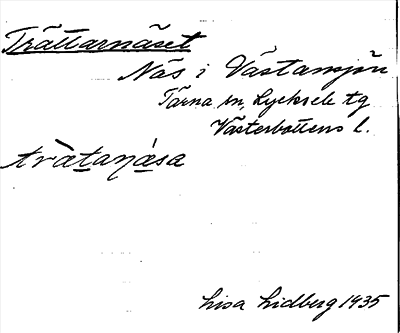 Trättarnäset
Näs i Västansjön
Tärna sn, Lycksele tg
Västerbottens l.
trä̀taṇása
Lisa Lidberg 1935